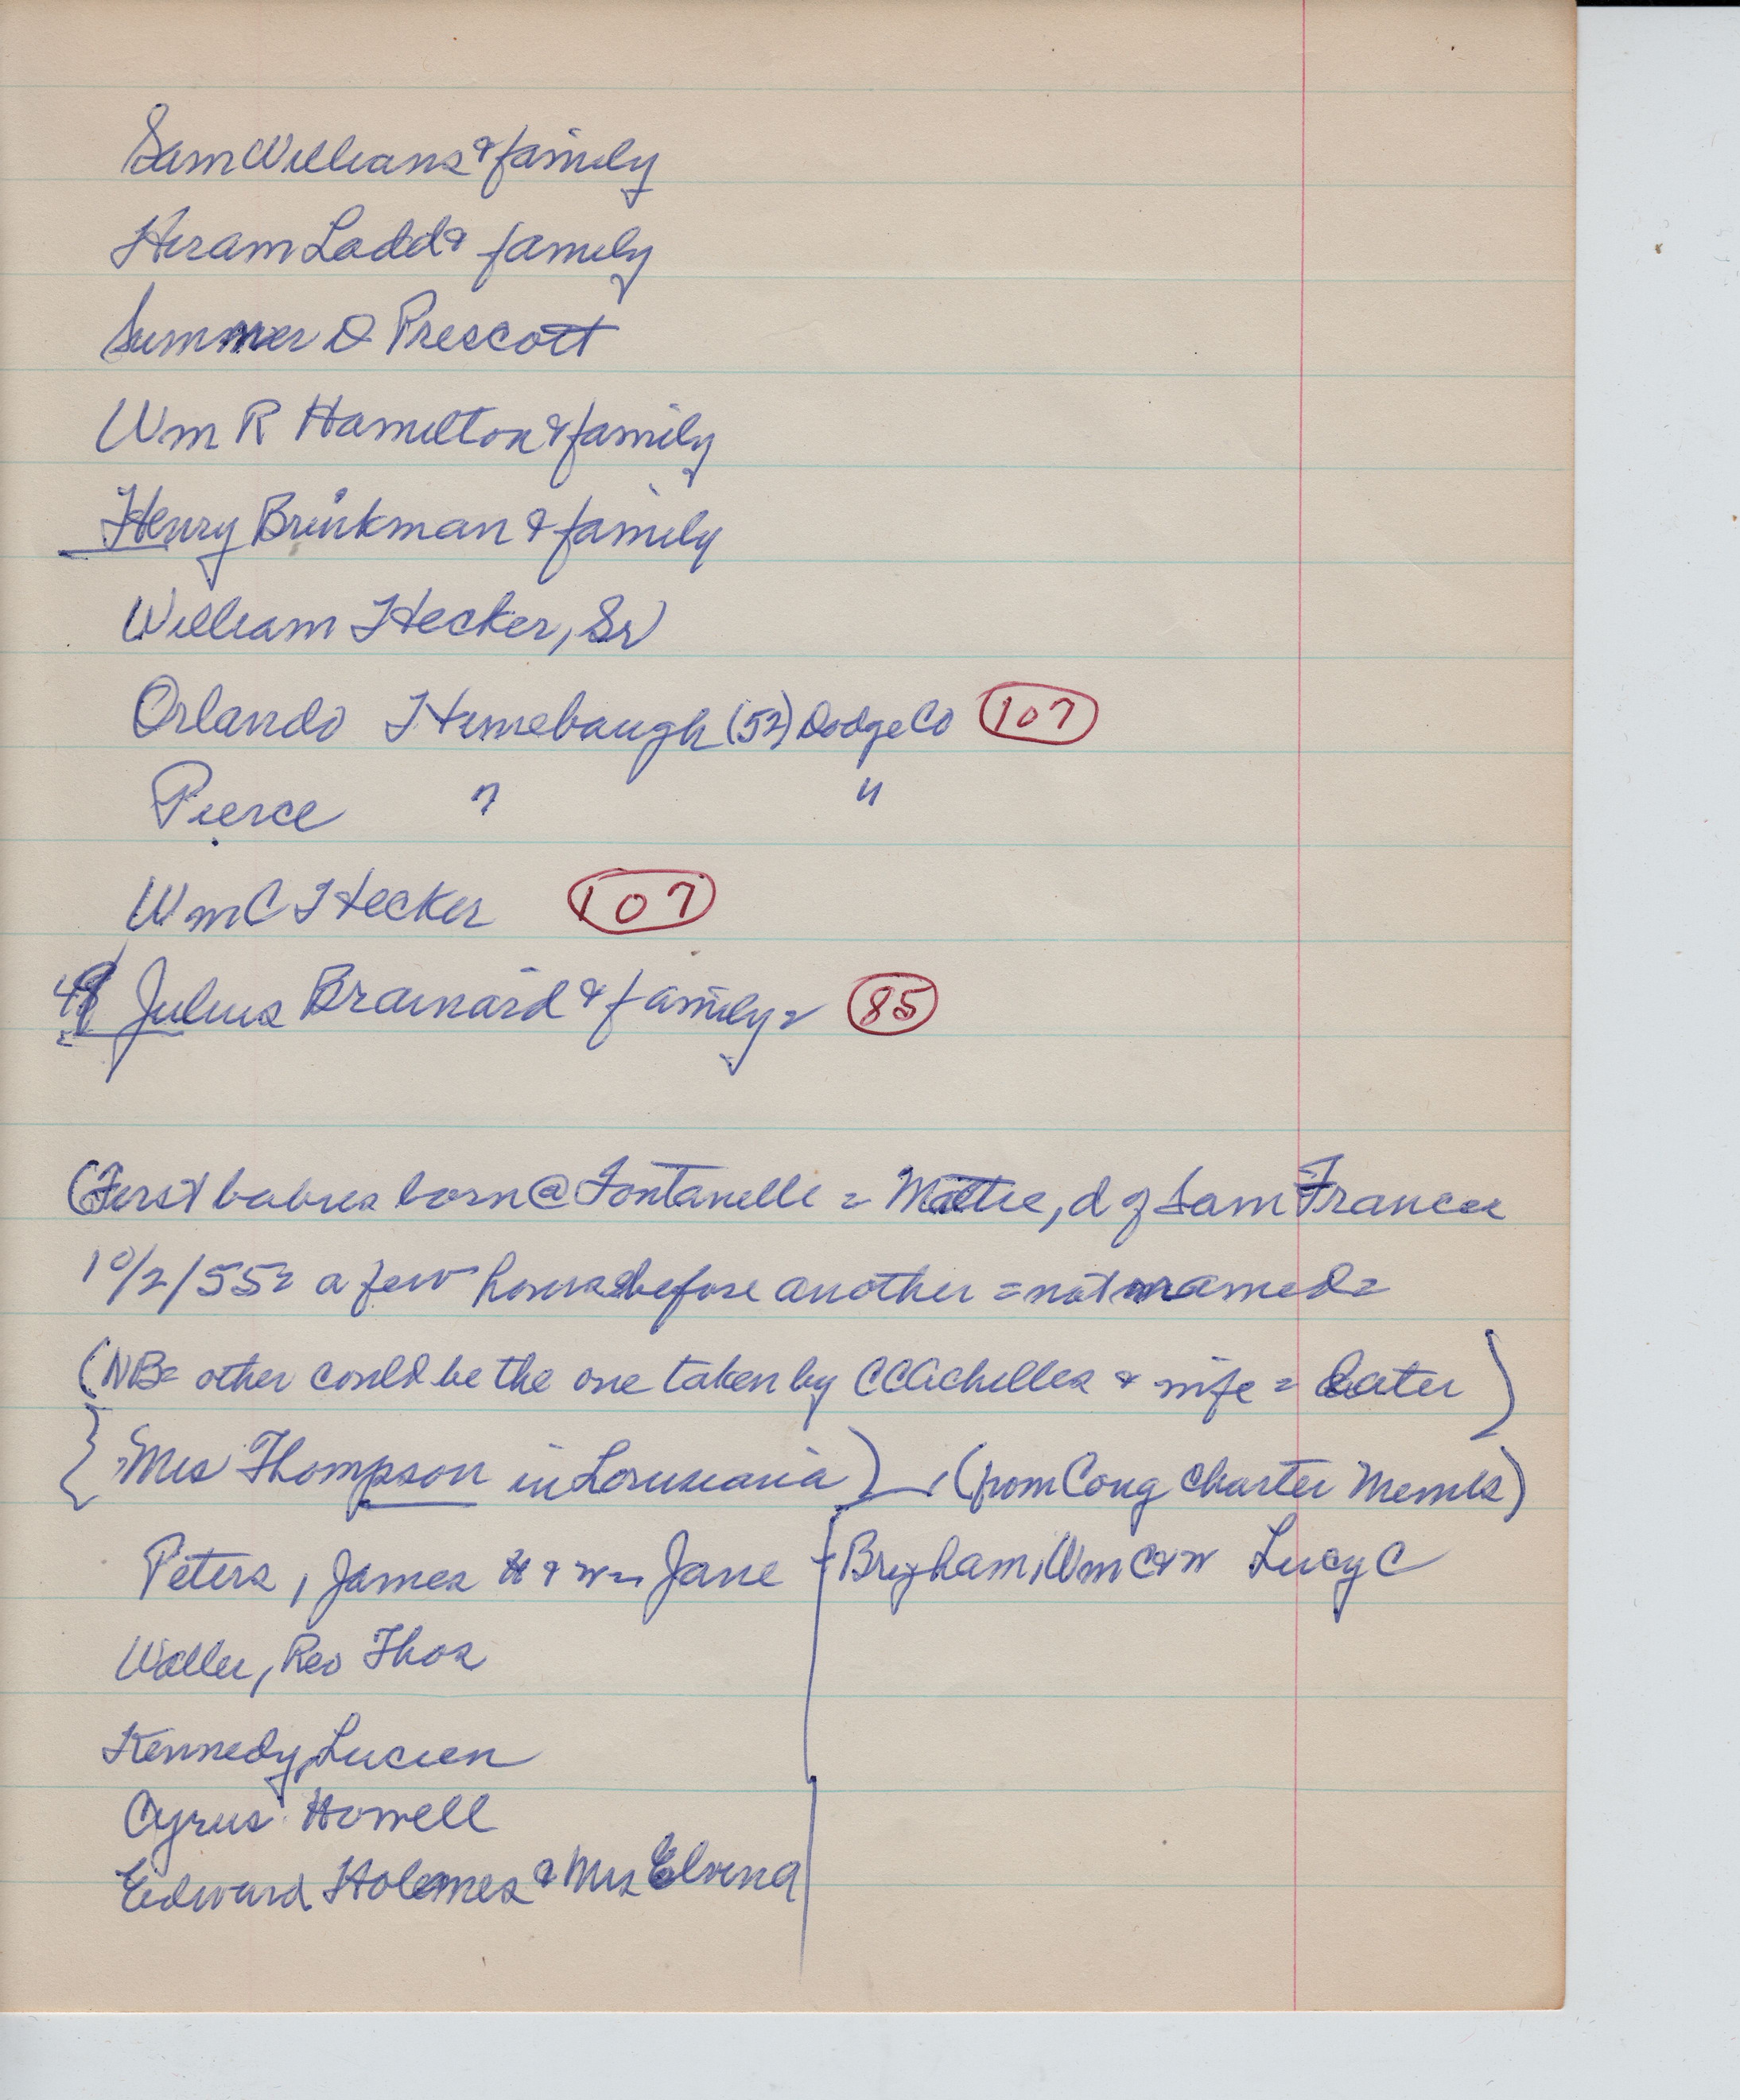 Sam Williams & family
Hiram Ladd & family
Sumner D Prescott
Wm R Hamilton & family
Henry Brinkman & family
William Hecker, Sr
Orlando Himebaugh (52) Dodge Co 107
Pierce " "
Wm C Hecker 107
49 Julius Brainard & family = 85
(First babies born @ Fontanelle = Mattie, d of Sam Francis
10/2/55 = a few hours before another = not named =
(NB = other could be the one taken by CC Achilles & wife = later)
{Mrs Thompson in Louisiana) (from Cong Charter Membs)
Peters, James H & w = Jane
Brigham, Wm C & w Lucy C
Waller, Rev Thos
Kennedy, Lucien
Cyrus Howell
Edward Holmes & Mrs Elvena